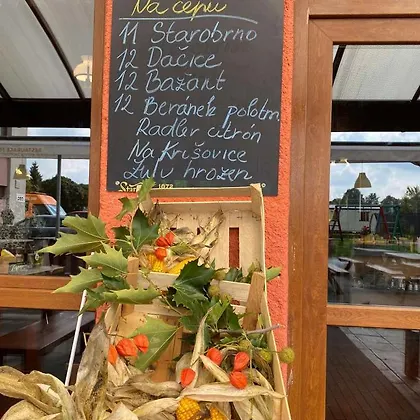 Na čepu
11 Starobrno
12 Dačice
12 Bažant
12 Beránek polotm.
Radler citrón
Na Krušovice
Žulu hrozen
1872